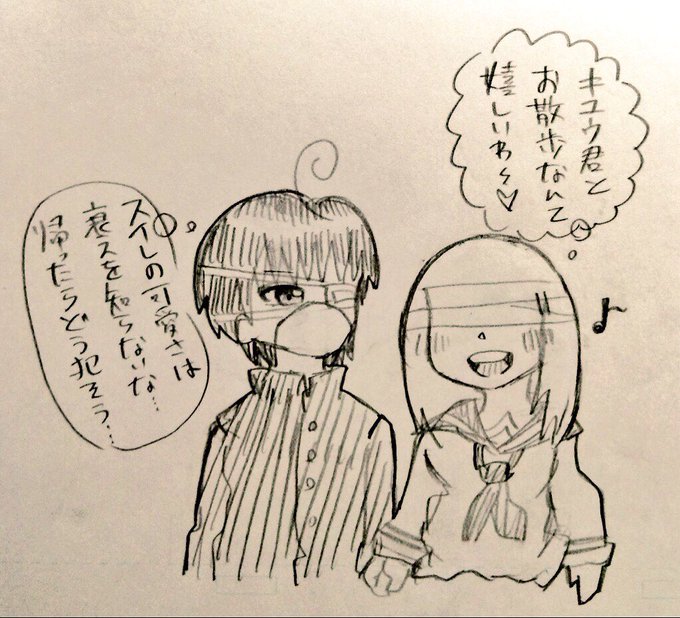 キユウ君と
お散歩なんて
嬉しいわ〜♡
スイレの可愛さは
衰えを知らないな…
帰ったらどう犯そう…